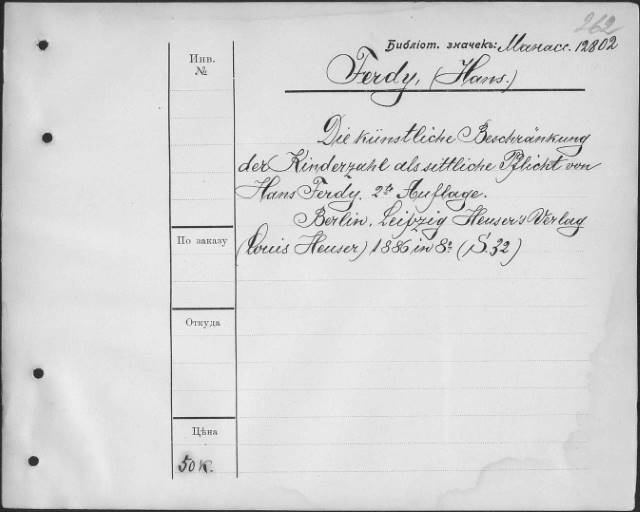 262
Библіот. значекъ: Манасс. 12802
Инв.
№
Ferdy, (Hans.)
Die künstliche Beschränkung
der Kinderzahl als sittliche Pflicht von
Hans Ferdy. 2te Auflage.
Berlin, Leipzig Heuser's Verlag
(Louis Heuser) 1886, in 8º (S. 32)
По заказу
Откуда
Цѣна
50 к.